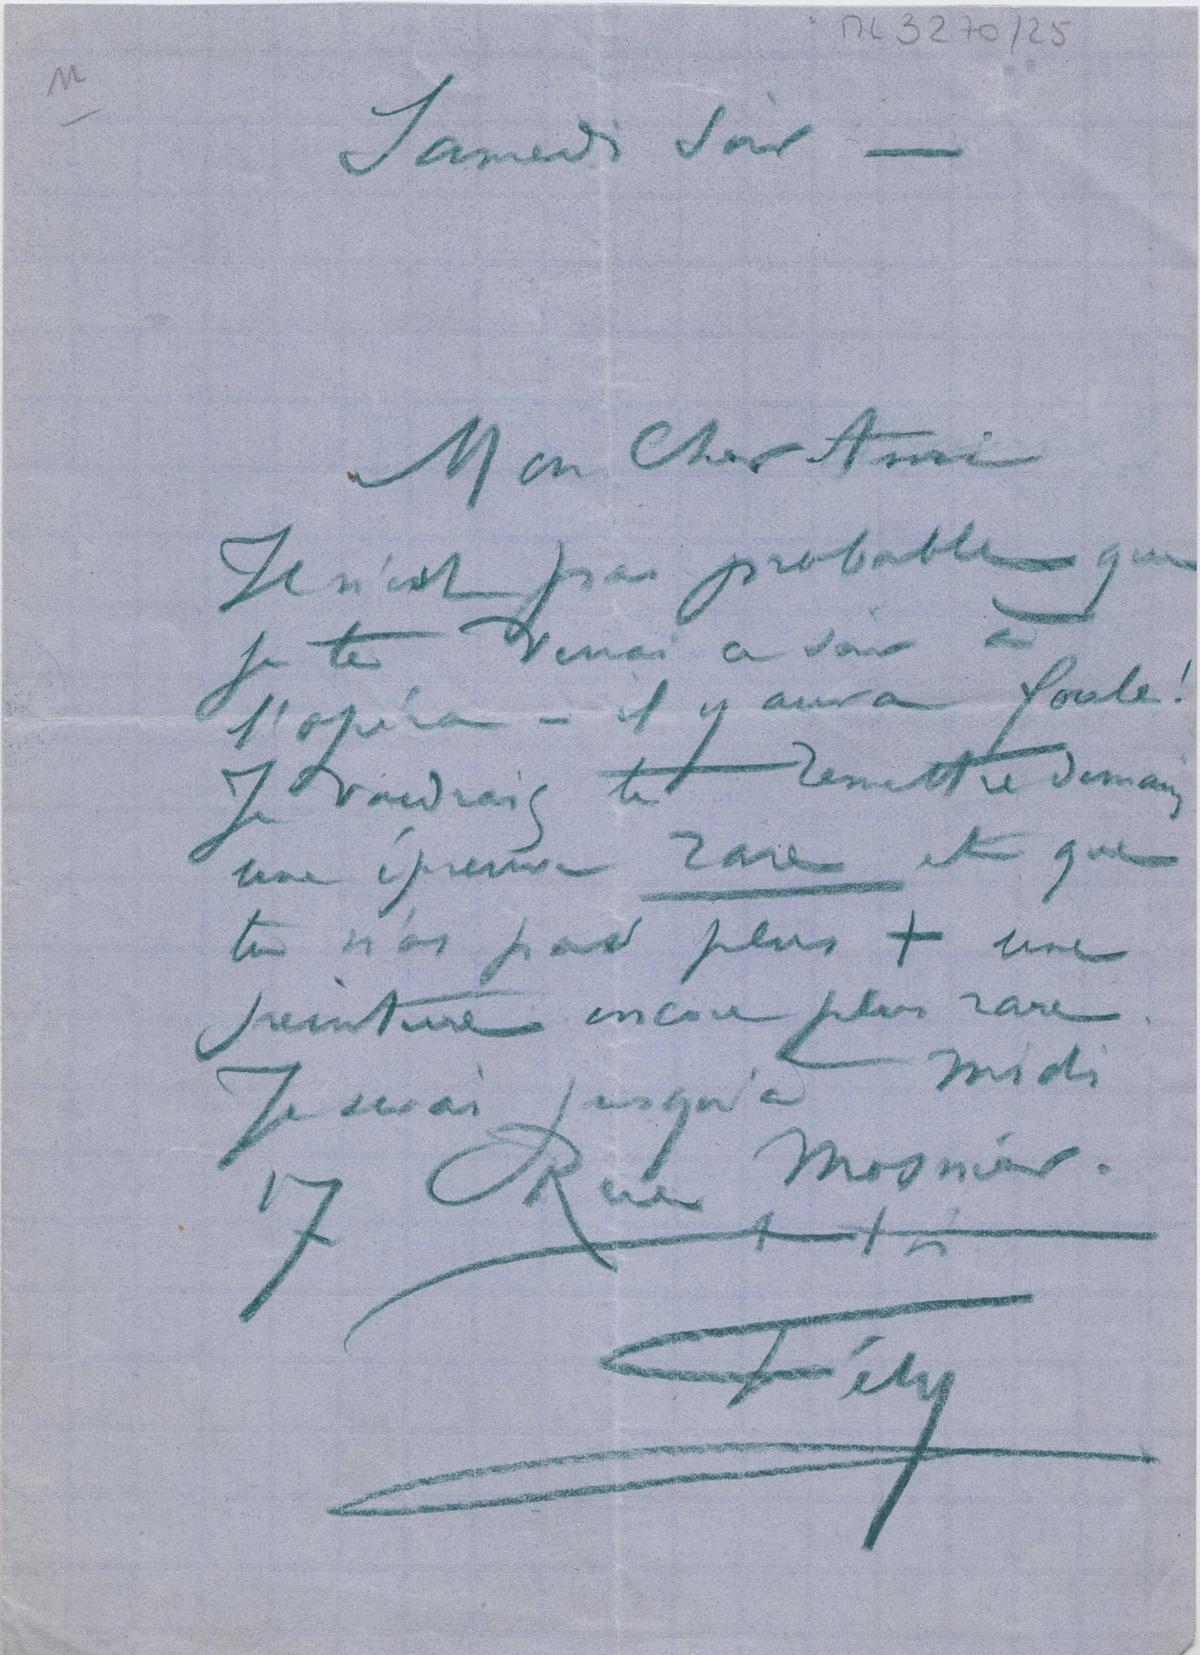 ML 3270/25
Samedi Soir —
Mon Cher Ami
Il n'est pas probable que
je te verrai ce soir à
l'opéra – il y aura foule!
Je voudrais te remettre demain
une épreuve rare et que
tu n'as pas plus + une
peinture encore plus rare.
Je serai jusqu'à midi
17 Rue Mosnier.
à toi
Fély